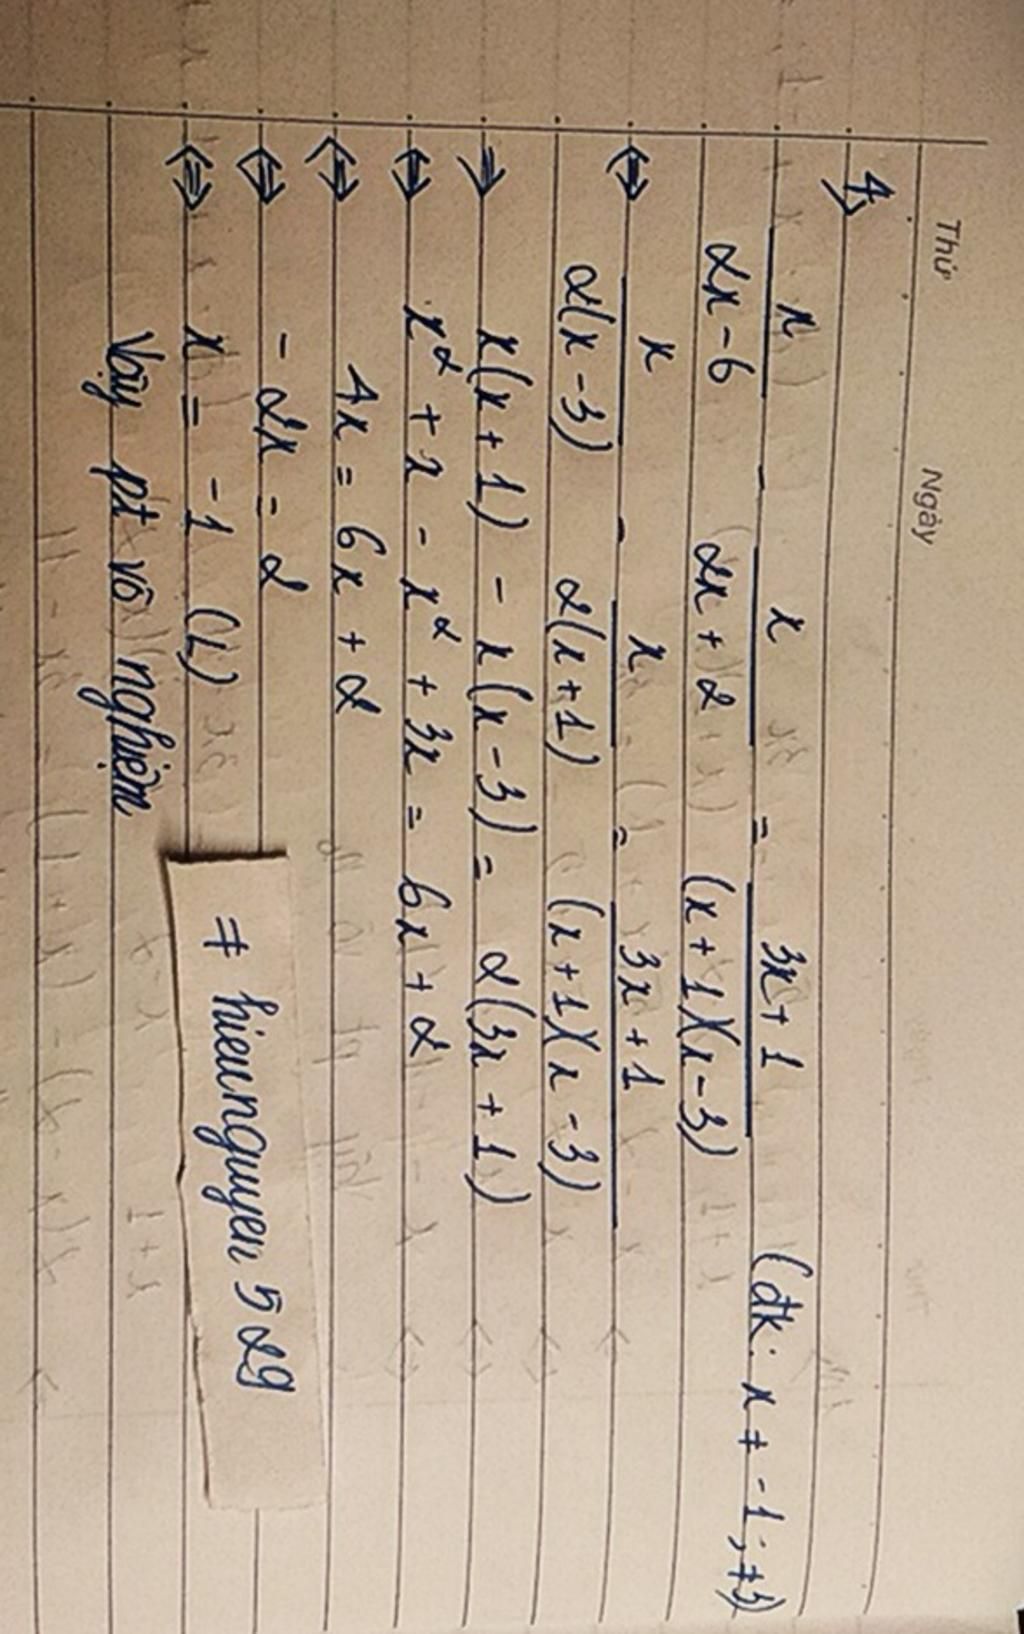 Thứ Ngày
4,
x/(2x-6) - x/(2x+2) = (3x+1)/((x+1)(x-3)) (đk: x ≠ -1; ≠3)
⇔ x/(2(x-3)) - x/(2(x+1)) = (3x+1)/((x+1)(x-3))
⇒ x(x+1) - x(x-3) = 2(3x+1)
⇔ x² + x - x² + 3x = 6x + 2
⇔ 4x = 6x + 2
⇔ -2x = 2
⇔ x = -1 (L)
Vậy pt vô nghiệm
≠ hieunguyen529